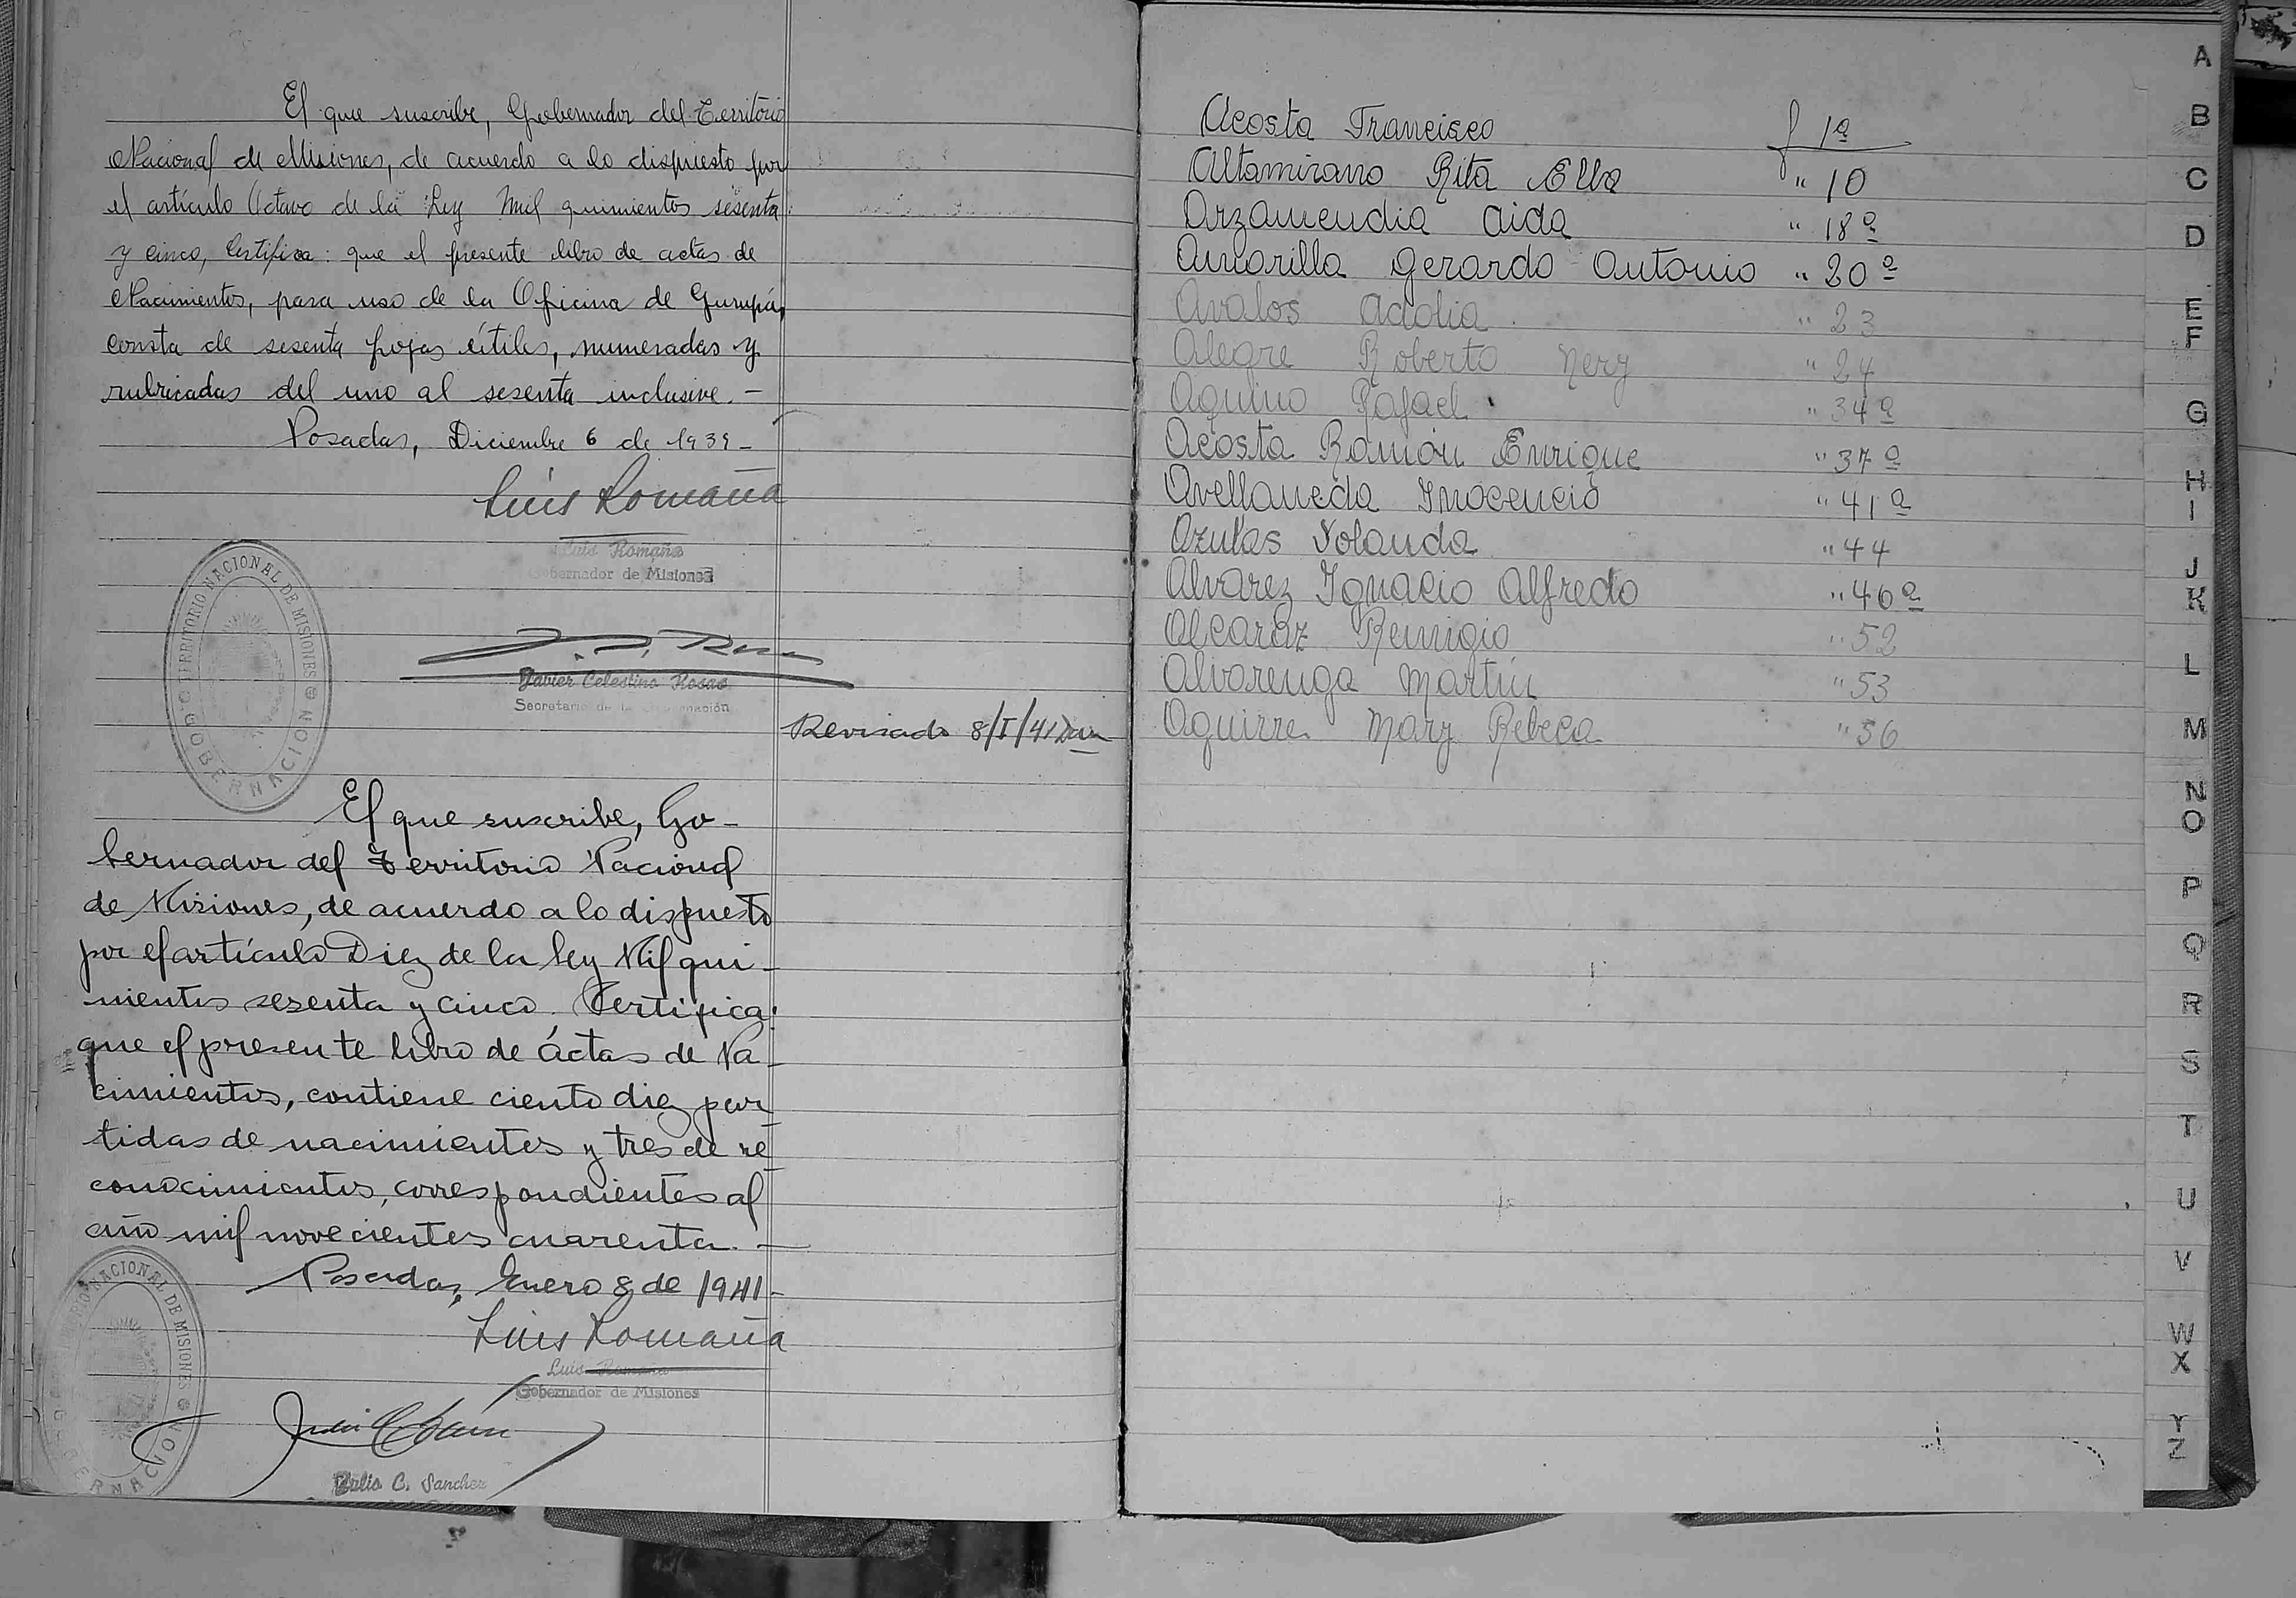 El que suscribe, Gobernador del Territorio
Nacional de Misiones, de acuerdo a lo dispuesto por
el artículo Octavo de la Ley Mil quinientos sesenta
y cinco, Certifica: que el presente libro de actas de
Nacimientos, para uso de la Oficina de Garupá,
consta de sesenta fojas útiles, numeradas y
rubricadas del uno al sesenta inclusive. —
Posadas, Diciembre 6 de 1939 -
Luis Romaña
Luis Romaña
Gobernador de Misiones
TERRITORIO NACIONAL DE MISIONES
GOBERNACION
Javier Celestino Rosas
Secretario de la Gobernación
Revisado 8/I/41
El que suscribe, Go-
bernador del Territorio Nacional
de Misiones, de acuerdo a lo dispuesto
por el artículo Diez de la Ley Mil qui-
nientos sesenta y cinco. Certifica:
que el presente libro de áctas de Na-
cimientos, contiene ciento diez par-
tidas de nacimientos y tres de re-
conocimientos, correspondientes al
año mil novecientos cuarenta. —
Posadas, Enero 8 de 1941 -
Luis Romaña
Luis Romaña
Gobernador de Misiones
NACIONAL DE MISIONES
GOBERNACION
Julio C. Sanchez
Acosta Francisco f 1ª
Altamirano Rita Elba " 10
Arzamendia Aida " 18ª
Amarilla Gerardo Antonio " 20ª
Avalos Adolia " 23
Alegre Roberto Nery " 24
Aquino Rafael " 34ª
Acosta Ramón Enrique " 37ª
Avellaneda Inocencio " 41ª
Azulas Yolanda " 44
Alvarez Ignacio Alfredo " 46ª
Alcaraz Remigio " 52
Alvarenga Martín " 53
Aguirre Mary Rebeca " 56
A
B
C
D
E
F
G
H
I
J
K
L
M
N
O
P
Q
R
S
T
U
V
W
X
Y
Z